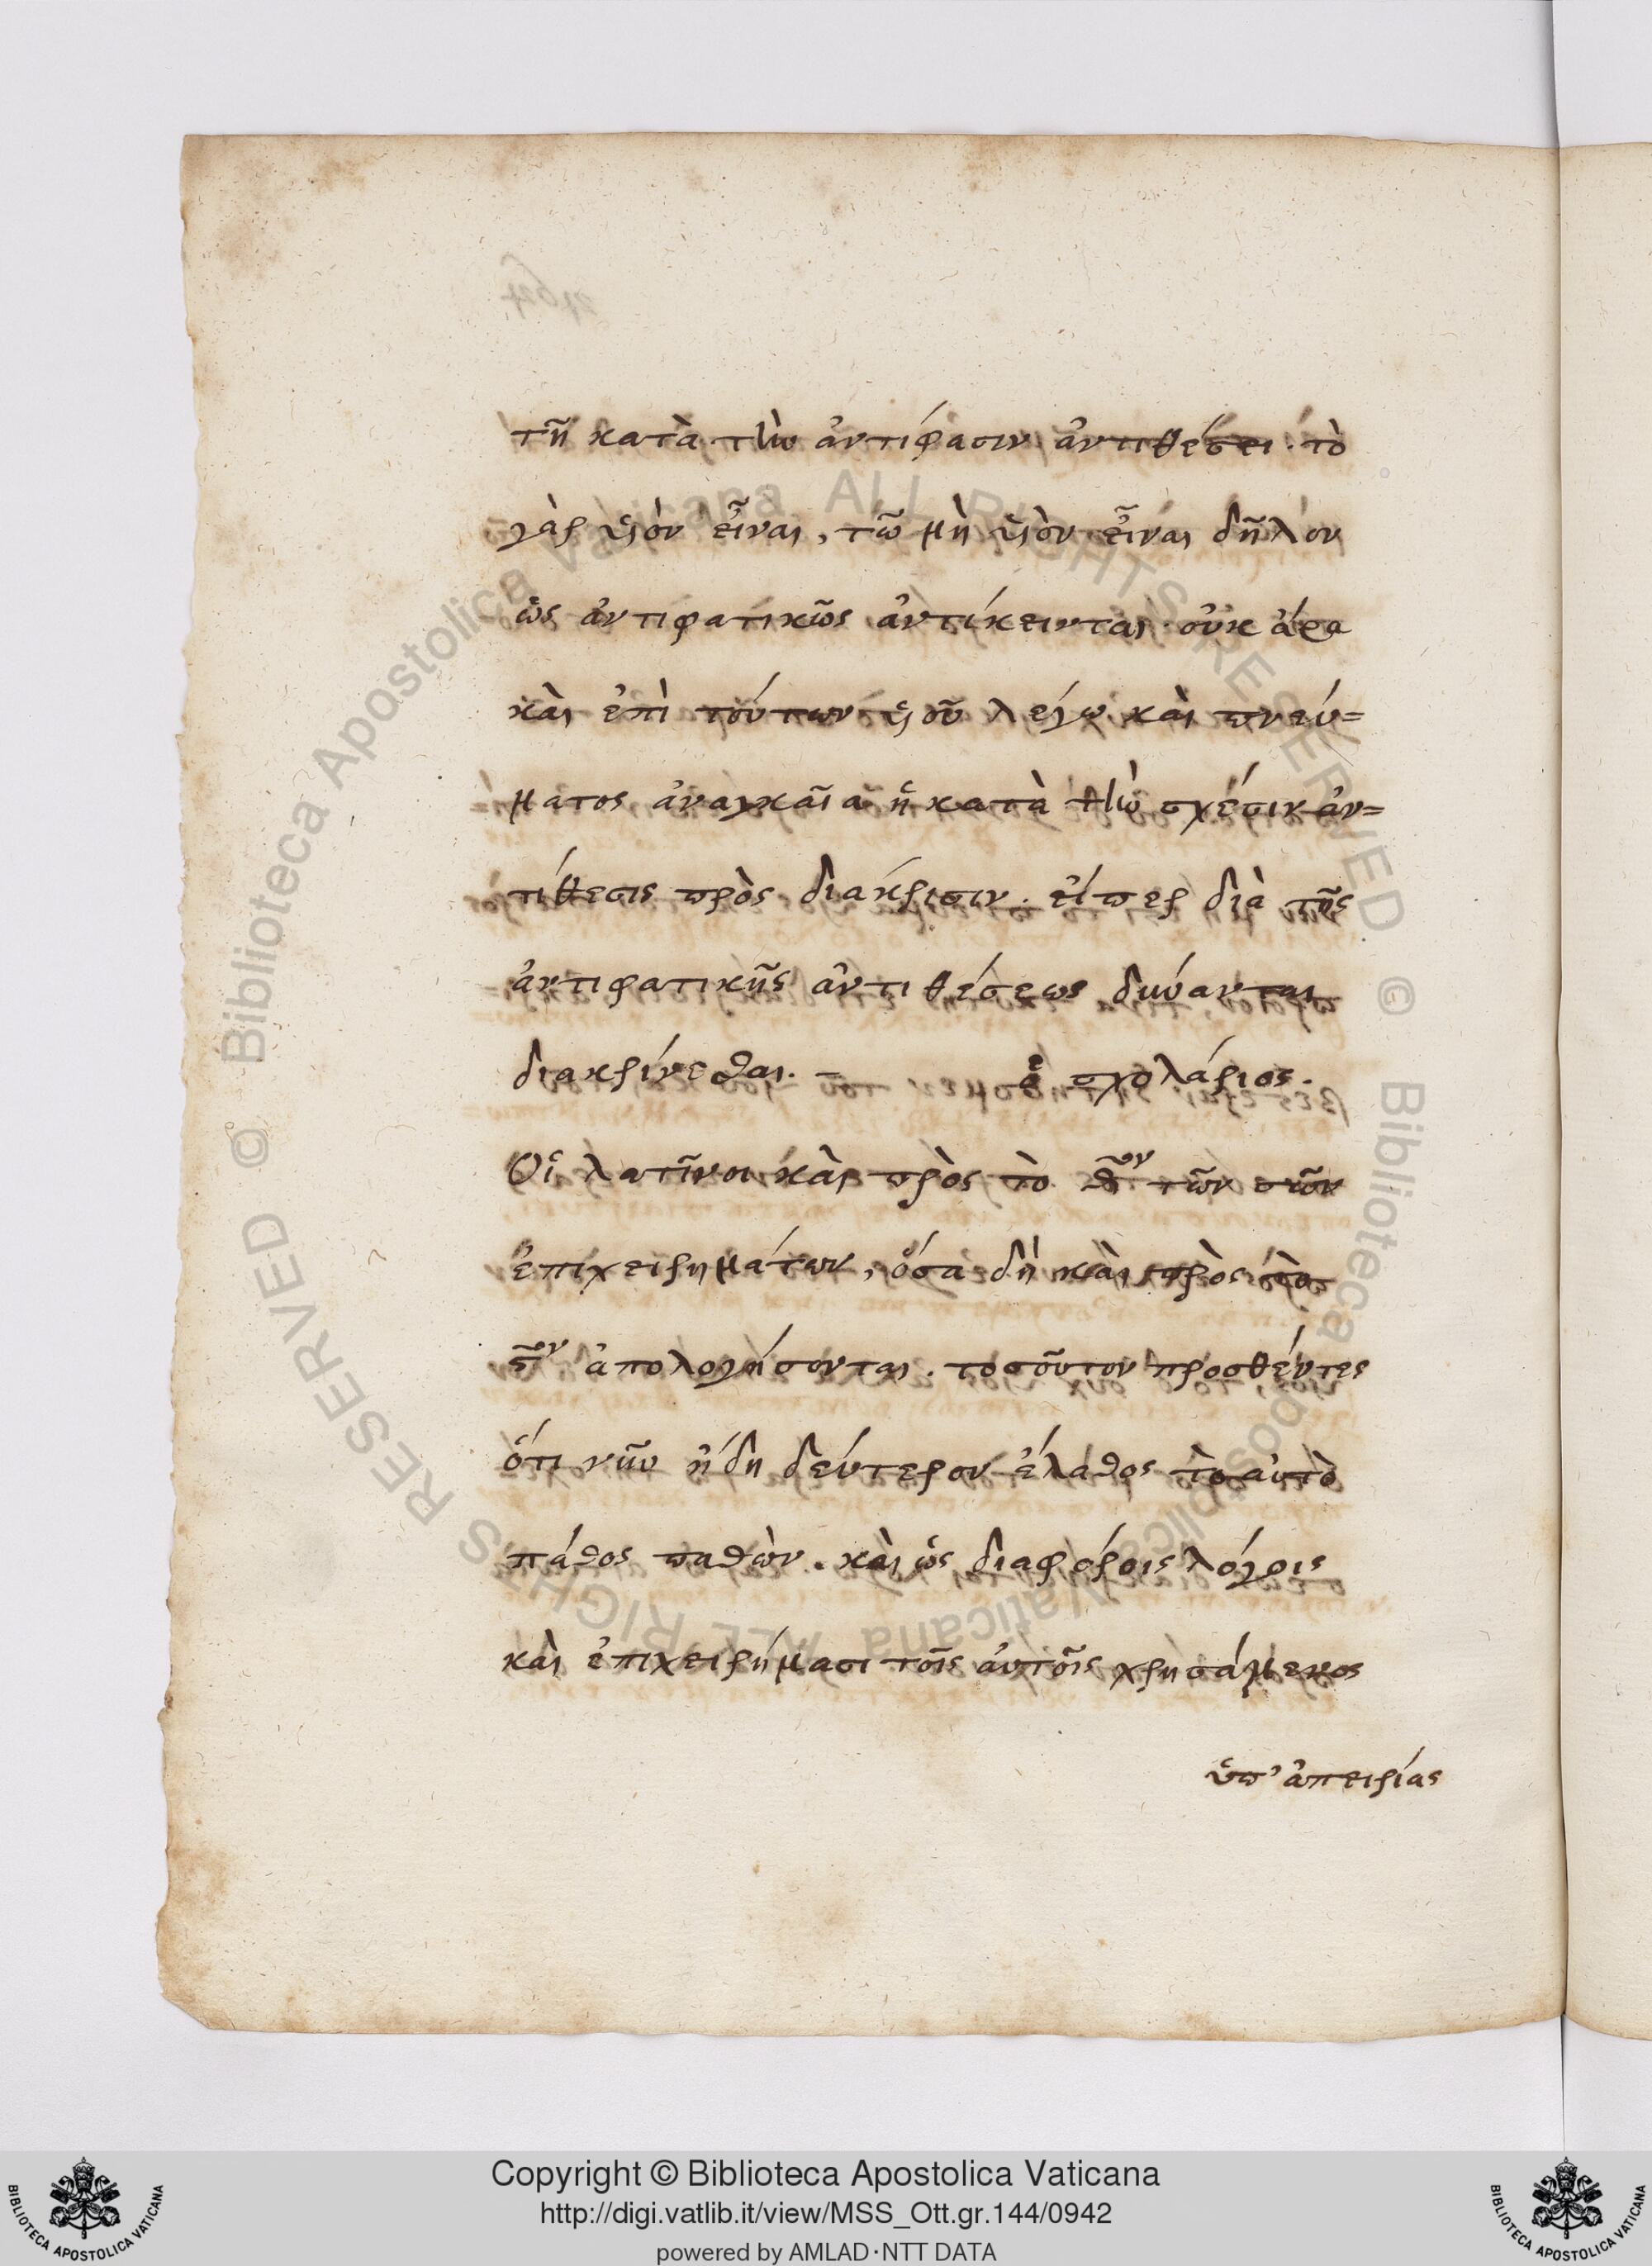 τῆ κατὰ τὴν ἀντίφασιν ἀντιθέσει. τὸ
γὰρ ὑιὸν εἶναι, τῶ μὴ ὑιὸν εἶναι δῆλον
ὡς ἀντιφατικῶς ἀντίκεινται. οὐκ ἄρα
καὶ ἐπὶ τούτων ὑιοῦ λέγω καὶ πνεύ=
ματος ἀναγκαῖα ἡ κατὰ τὴν σχέσιν ἀν=
τίθεσις πρὸς διάκρισιν. εἴπερ διὰ τῆς
ἀντιφατικῆς ἀντιθέσεως δύνανται
διακρίνεσθαι. – ὁ σχολάριος.
Οἱ λατῖνοι καὶ πρὸς τὸ θ^ον τῶν σῶν
ἐπιχειρημάτων, ὅσα δὴ καὶ πρὸς τὸ
ϛ^ον ἀπολογήσονται. τοσοῦτον προσθέντες
ὅτι νῦν ἤδη δεύτερον ἔλαθος τὸ αὐτὸ
πάθος παθὼν. καὶ ὡς διαφόροις λόγοις
καὶ ἐπιχειρήμασι τοῖς αὐτοῖς χρησάμενος
ὑπ' ἀπειρίας
Copyright © Biblioteca Apostolica Vaticana
http://digi.vatlib.it/view/MSS_Ott.gr.144/0942
powered by AMLAD·NTT DATA